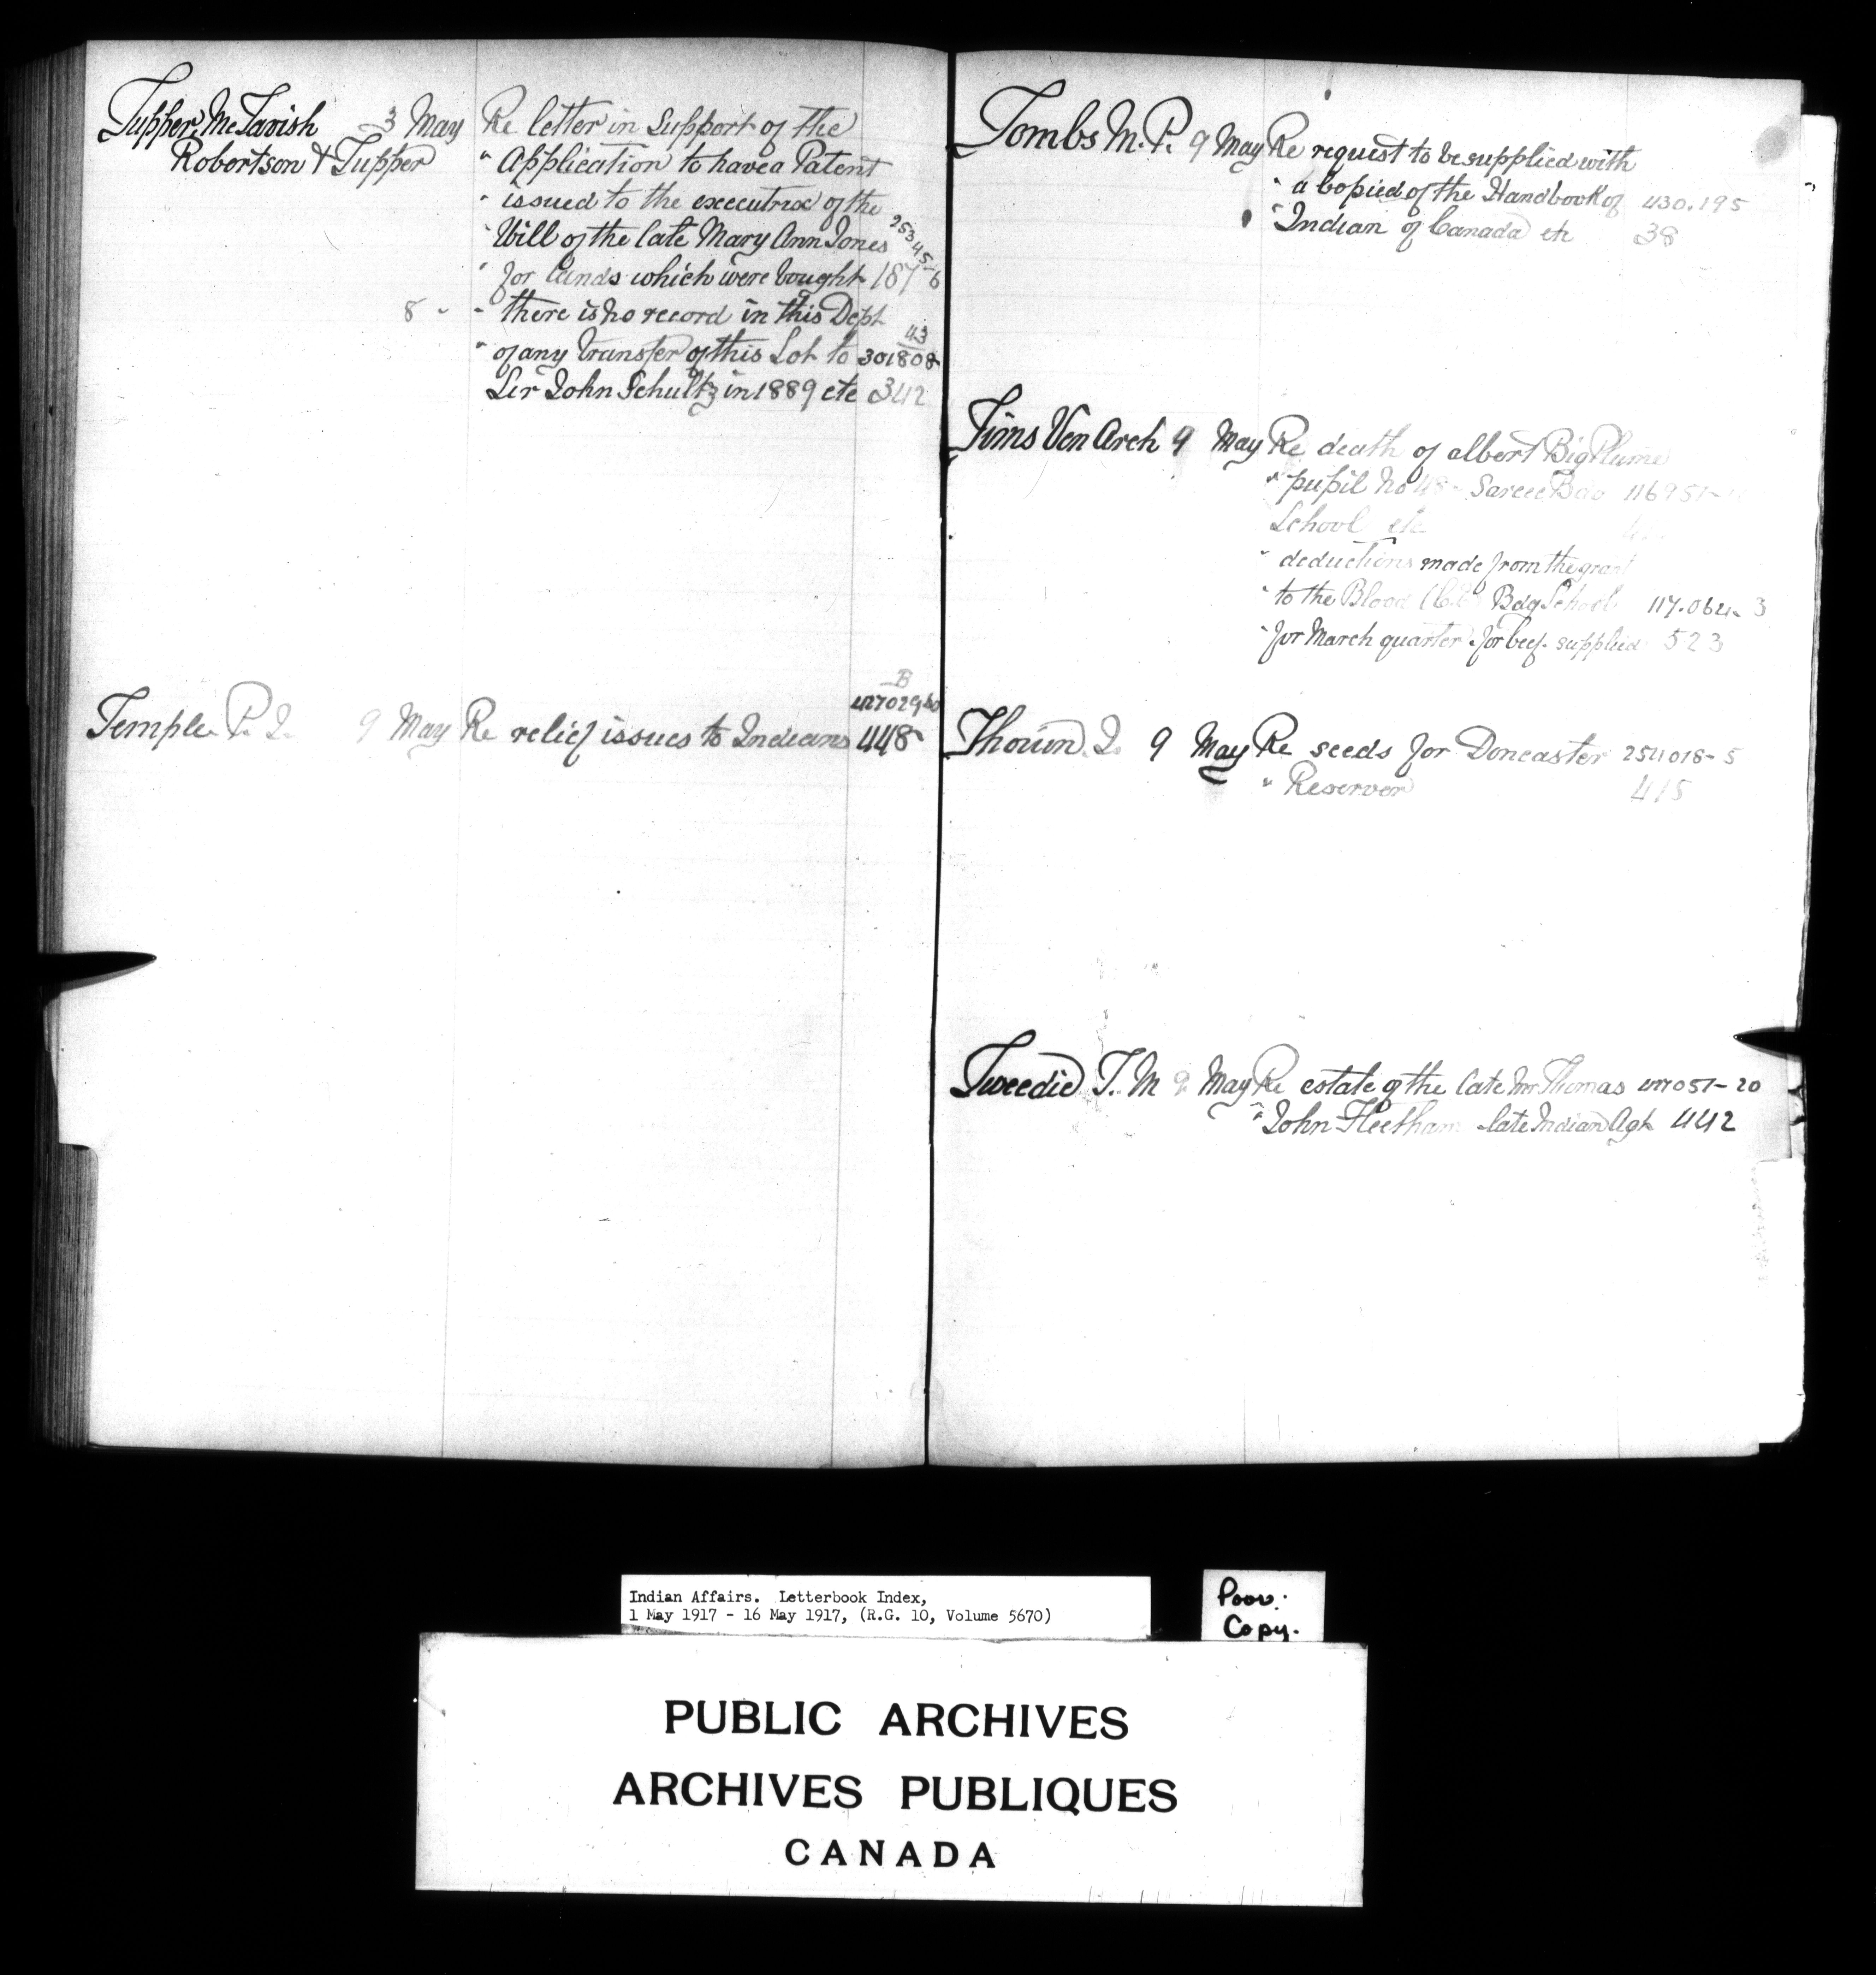 Tupper, McTavish 3 May Re letter in Support of the
Robertson & Tupper " Application to have a Patent
" issued to the executrix of the
" Will of the late Mary Ann Jones 25345-6
" for Lands which were bought 187
8 " - there is no record in this Dept 43
" of any transfer of this Lot to 301808
Sir John Schultz in 1889 etc 342
B
427029
Temple P. 9 May Re relief issues to Indians 448
Tombs M. P. 9 May Re request to be supplied with
" a Copied of the Handbook of 430.195
" Indian of Canada etc 38
Tims Ven Arch 9 May Re death of albert Big Plume
" pupil No 48 - Sarcee Bdg 116951-
School etc
" deductions made from the grant
" to the Blood (C.E) Bdg School 117.064- 3
" for March quarter for beef supplied 523
Thouin 9 May Re seeds for Doncaster 254018-5
" Reserver 415
Tweedie T. M 9 May Re estate of the late Mr Thomas 427051-20
" John Fleetham late Indian Agt 442
Indian Affairs. Letterbook Index,
1 May 1917 - 16 May 1917, (R.G. 10, Volume 5670)
Poor
Copy.
PUBLIC ARCHIVES
ARCHIVES PUBLIQUES
CANADA